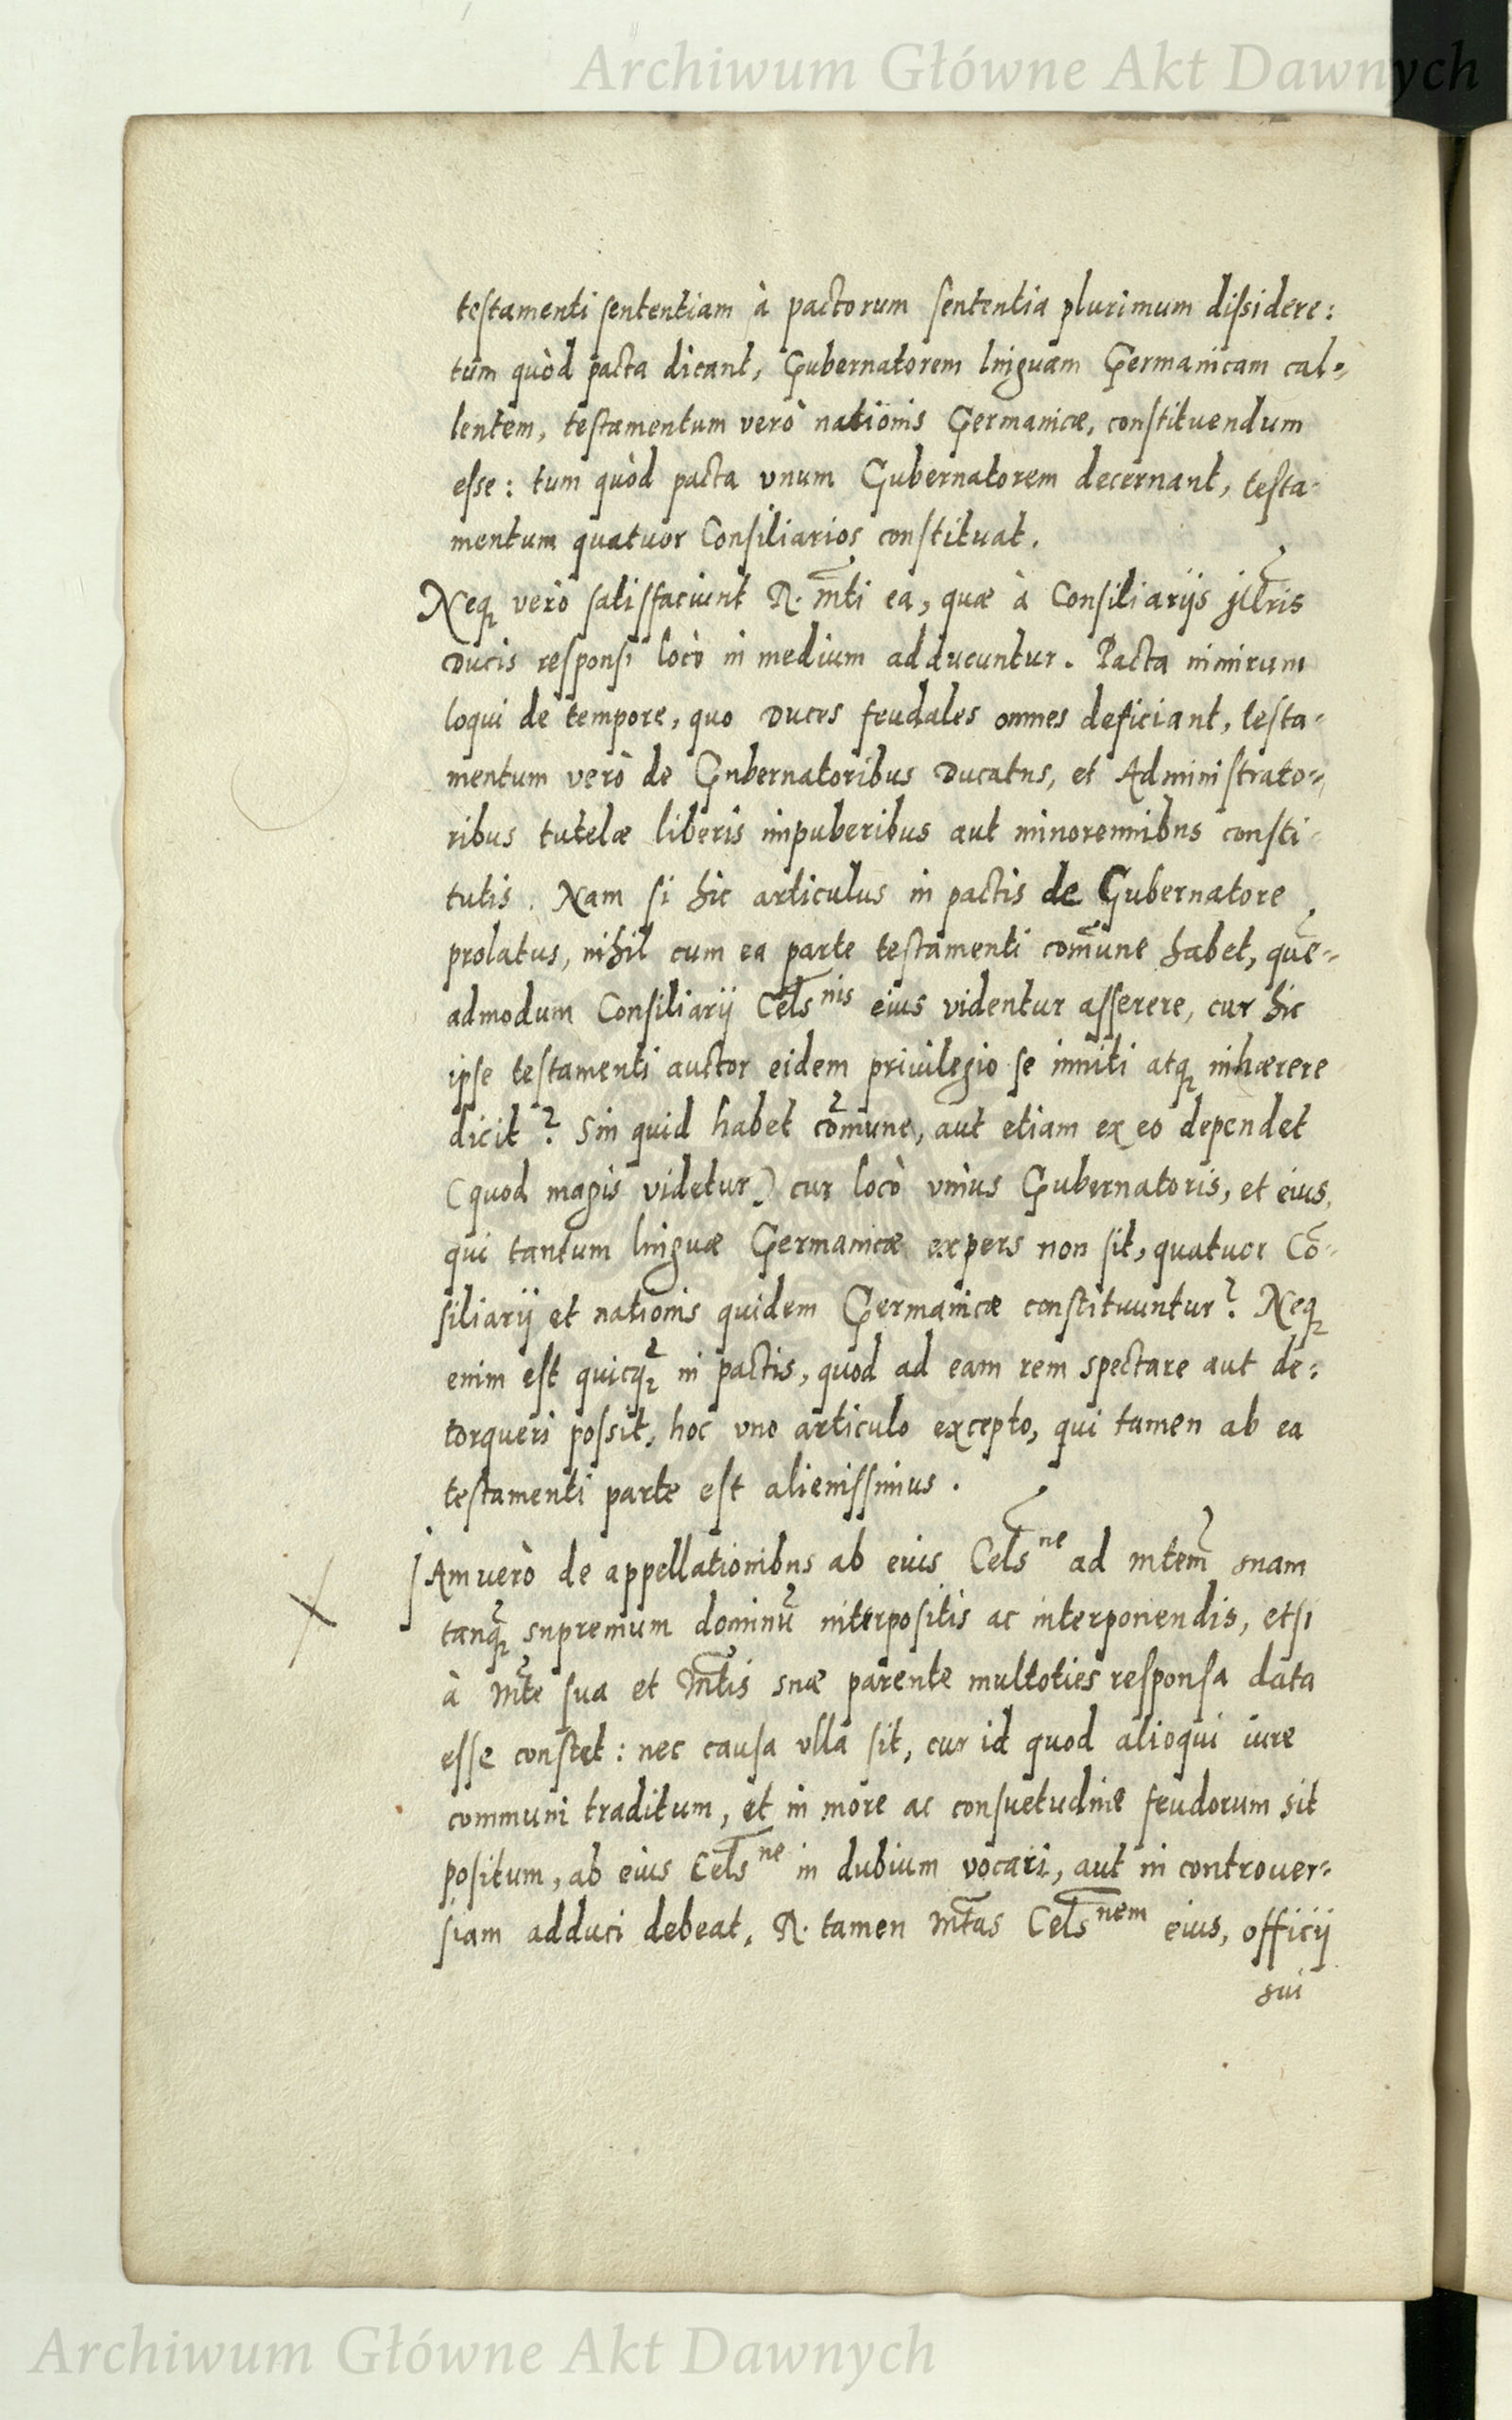 Archiwum Główne Akt Dawnych
testamenti sententiam à pactorum sententia plurimum dissidere:
tùm quòd pacta dicant, Gubernatorem linguam Germanicam cal=
lentem, testamentum verò nationis Germanicæ, constituendum
esse: tum quòd pacta vnum Gubernatorem decernant, testa-
mentum quatuor Consiliarios constituat.
Neq̢ verò satisfaciunt R. m̃ti ea, quæ à Consiliarijs jll̃ris
Ducis responsi locò in medium adducuntur. Pacta nimirum
loqui de tempore, quo Duces feudales omnes deficiant, testa=
mentum verò de Gubernatoribus Ducatus, et Administrato=
ribus tutelæ liberis impuberibus aut minorennibus consti-
tutis. Nam si hic articulus in pactis de Gubernatore
prolatus, nihil cum ea parte testamenti com̃une habet, quẽ=
admodum Consiliarij Cels̃nis eius videntur asserere, cur hic
ipse testamenti auctor eidem priuilegio se inniti atq̢ inhærere
dicit? Sin quid habet cõmune, aut etiam ex eo dependet
(quod magis videtur) cur locò vnius Gubernatoris, et eius,
qui tantum linguæ Germanicæ expers non sit, quatuor Cõ=
siliarij et nationis quidem Germanicæ constituuntur? Neq̢
enim est quicq̢̃ in pactis, quod ad eam rem spectare aut de:
torqueri possit, hoc vno articulo excepto, qui tamen ab ea
testamenti parte est alienissimus.
JAm uerò de appellationibus ab eius Cels̃ne ad mtem̃ suam
tanq̢̃ supremum dominũ interpositis ac interponendis, etsi
à m̃te sua et M̃tis suæ parente multoties responsa data
esse constet: nec causa vlla sit, cur id quod alioqui iure
communi traditum, et in more ac consuetudine feudorum sit
positum, ab eius Cels̃ne in dubium vocari, aut in controuer=
siam adduci debeat, R. tamen m̃tas Cels̃nem eius, officij
sui
Archiwum Główne Akt Dawnych